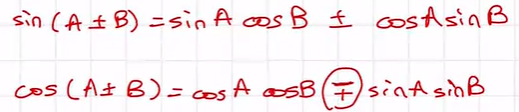 sin (A ± B) = sin A cos B ± cos A sin B
cos (A ± B) = cos A cos B ∓ sin A sin B